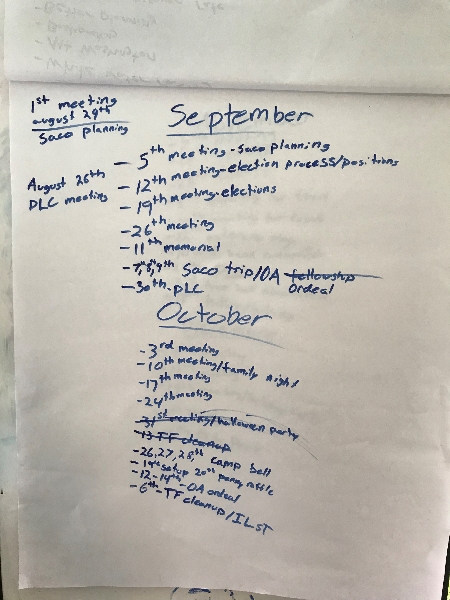 - Better planning
1st meeting
august 29th
Saco planning
August 26th
PLC meeting
September
- 5th meeting - Saco planning
- 12th meeting - election process/positions
- 19th meeting - elections
- 26th meeting
- 11th memorial
- 7,8,9th Saco trip/OA fellowship
ordeal
- 30th - PLC
October
- 3rd meeting
- 10th meeting/family night
- 17th meeting
- 24th meeting
- 31st meeting/halloween party
- 13 TF cleanup
- 26,27,28th camp bell
- 19th setup 20th penny raffle
- 12-14th - OA ordeal
- 6th - TF cleanup/ILST